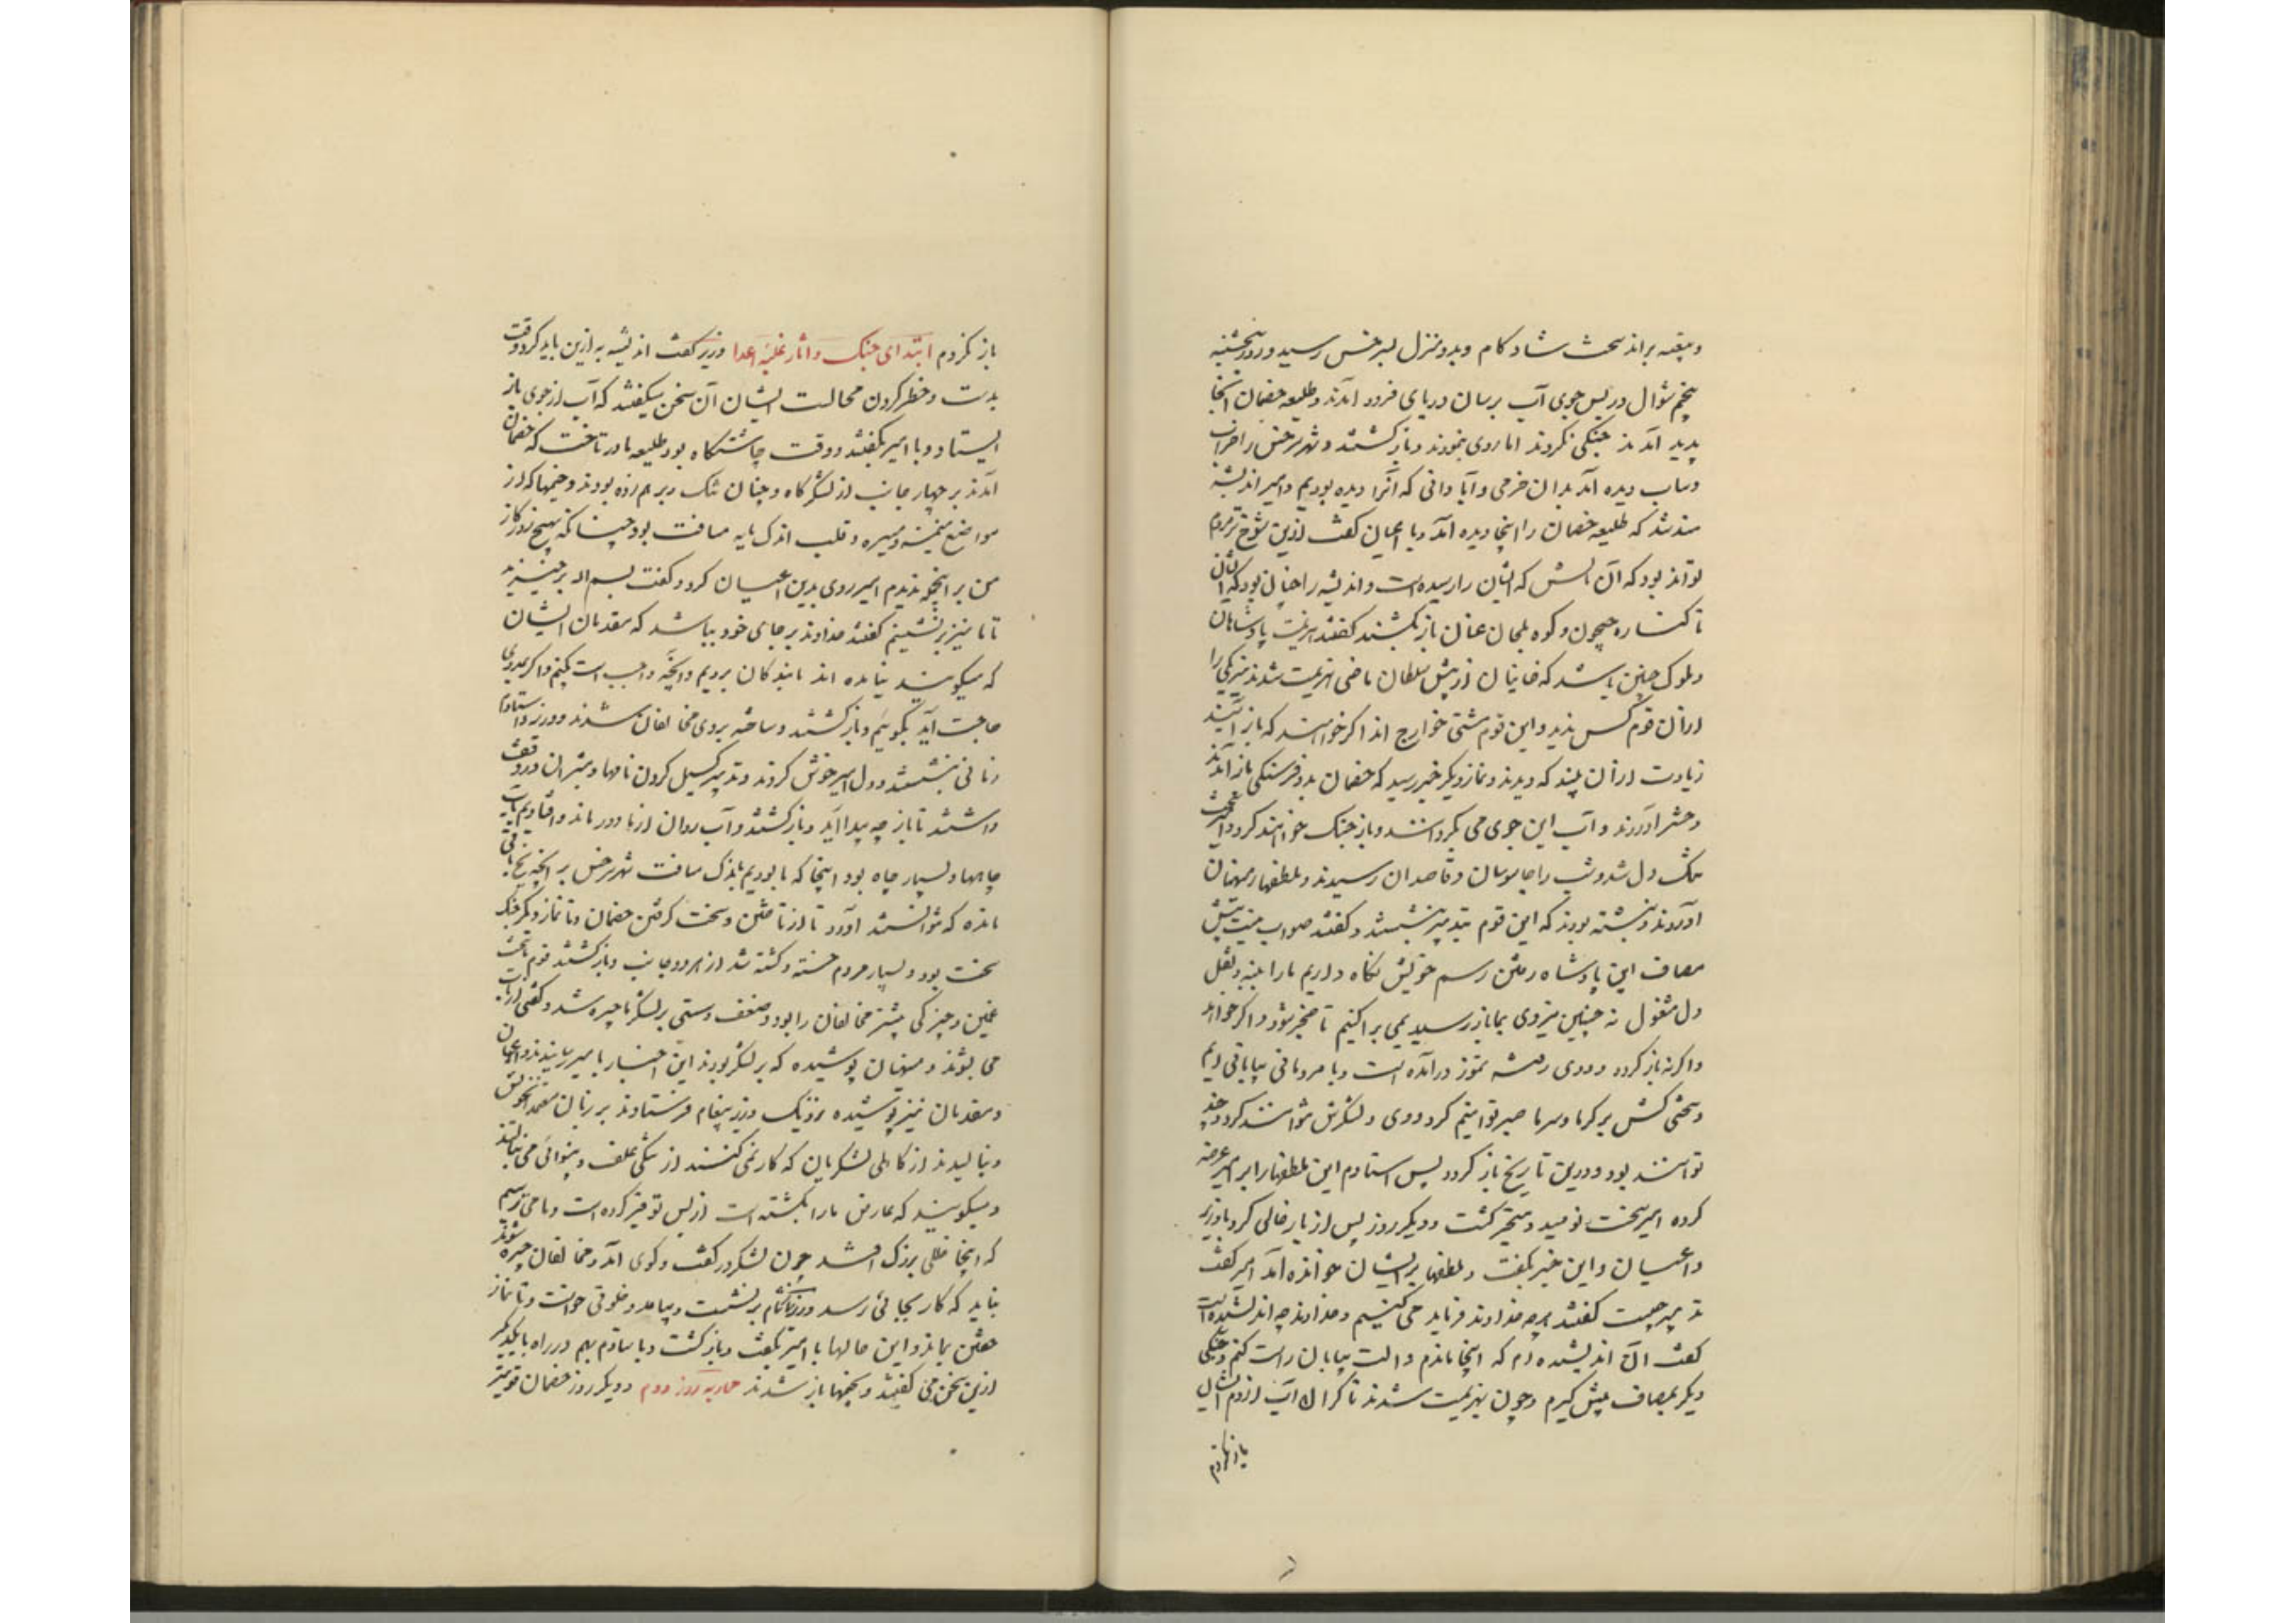 و بیقیه براند سخت شاد کام و بدو منزل بسرخس رسید و روز پنجشنبه
پنجم شوال در پس جوی آب برسان دریای فرود آمدند و طلیعه خصمان آنجا
پدید آمدند جنگی نکردند اما روی بنمودند و باز گشتند و شهر سرخس را خراب
و یباب دیده آمد بدان خرمی و آبادانی که آنرا دیده بودیم و امیر اندیشه
مند شد که طلیعه خصمان را اینجا دیده آمد و با اعیان گفت ازین شوخ تر مردم
تواند بود که آن مالش که ایشان را رسیده است و اندیشه را چنان بود که ایشان
تا کناره جیحون و کوه بلجان عنان باز نکشند گفتند هزیمت پادشاهان
و ملوک چنین باشد که خانیان از پیش سلطان ماضی بهزیمت شدند نیز یکی را
ازان قوم کس ندید و این قوم مشتی خوارج اند اگر خواهند که باز آیند
زیادت ازان بینند که دیدند و نماز دیگر خبر رسید که خصمان بدو فرسنگی باز آمدند
و حشر آوردند و آب این جوی می بگردانند و باز جنگ خواهند کرد و امیر سخت
تنگ دل شد و شب را جاسوسان و قاصدان رسیدند و ملطفها از منهیان
آوردند نبشته بودند که این قوم بتدبیر بنشستند و گفتند صواب نیست پیش
مصاف این پادشاه رفتن رسم خویش نگاه داریم ما را بنه و ثقل
دل مشغول نه چنین نیروی بما باز رسید بمی پراکنیم تا ضجر شود و اگر خواهد
و اگرنه باز گردد و دی رفته تموز درآمده است و ما مردمانی بیابانی ایم
و سختی کش بر گرما و سرما صبر توانیم کرد و وی و لشکرش نتوانند کرد و چند
توانند بود و درین تاریخ باز گردد پس استادم این ملطفها را بر امیر عرضه
کرده امیر سخت نومید و متحیر گشت و دیگر روز پس از بار خالی کرد با وزیر
و اعیان و این خبر بگفت و ملطفها بر ایشان خوانده آمد امیر گفت
تدبیر چیست گفتند هر چه خداوند فرماید می کنیم و خداوند چه اندیشیده است
گفت آن اندیشیده ام که اینجا بمانم و آلت بیابان راست کنم و جنگی
دیگر بمصاف پیش گیرم و چون بهزیمت شدند تا کران آب از دم ایشان
باز نگردم
باز نگردم ابتدای جنگ و آثار غلبه اعدا وزیر گفت اندیشه به ازین باید کرد وقت
بدست و خطر کردن محالست ایشان آن سخن میگفتند که آب از جوی باز
ایستاد و با امیر بگفتند و وقت چاشتگاه بود طلیعه ما در تاخت که خصمان
آمدند بر چهار جانب از لشکرگاه و چنان تنگ در هم زده بودند و خیمها که از
مواضع میمنه و میسره و قلب اندک مایه مسافت بود چنانکه بهیچ روزگار
من بر اینجمله ندیدم امیر روی بدین اعیان کرد و گفت بسم الله بر خیزید
تا ما نیز برنشینیم گفتند خداوند بر جای خود بباشد که مقدمان ایشان
که میگویند نیامده اند ما بندگان برویم و آنچه واجب است بکنیم و اگر بمددی
حاجت آید بگوییم و باز گشتند و ساخته بروی مخالفان شدند و وزیر و استادم
زمانی بنشستند و دل امیر خوش کردند و تدبیر گسیل کردن نامها و مبشران در وقت
داشتند تا باز چه پیدا آید و باز گشتند و آب روان از ما دور ماند و افتادیم بآب
چاهها و بسیار چاه بود اینجا که ما بودیم باندک مسافت شهر سرخس بر انچه یخ باقی
مانده که نتوانستند آورد تا از تاختن و سخت گرفتن خصمان و تا نماز دیگر جنگ
سخت بود و بسیار مردم خسته و کشته شد از هر دو جانب و باز گشتند قوم ما سخت
غمین و چیرگی بیشتر مخالفان را بود و ضعف و سستی بر لشکر ما چیره شد و گفتی از تاب
می بشوند و منهیان پوشیده که بر لشکر بودند این اخبار با امیر رسانیدند و اعیان
و مقدمان نیز پوشیده بنزدیک وزیر پیغام فرستادند بر زبان معتمدان خویش
و بنالیدند از کاهلی لشکریان که کار نمی کنند از تنگی علف و بینوائی می بنالند
و میگویند که عارض ما را بکشته است از بس توفیر کرده است و ما می ترسیم
که اینجا خللی بزرگ افتد چون لشکر در گفت و گوی آمد و مخالفان چیره شوند
نباید که کار بجائی رسد وزیر نماز شام برنشست و بیامد و خلوتی خواست و تا نماز
خفتن بماند و این حالها با امیر بگفت و باز گشت و با استادم بهم در راه با یکدیگر
ازین سخن می گفتند و بخیمها باز شدند محاربه روز دوم و دیگر روز خصمان قویتر